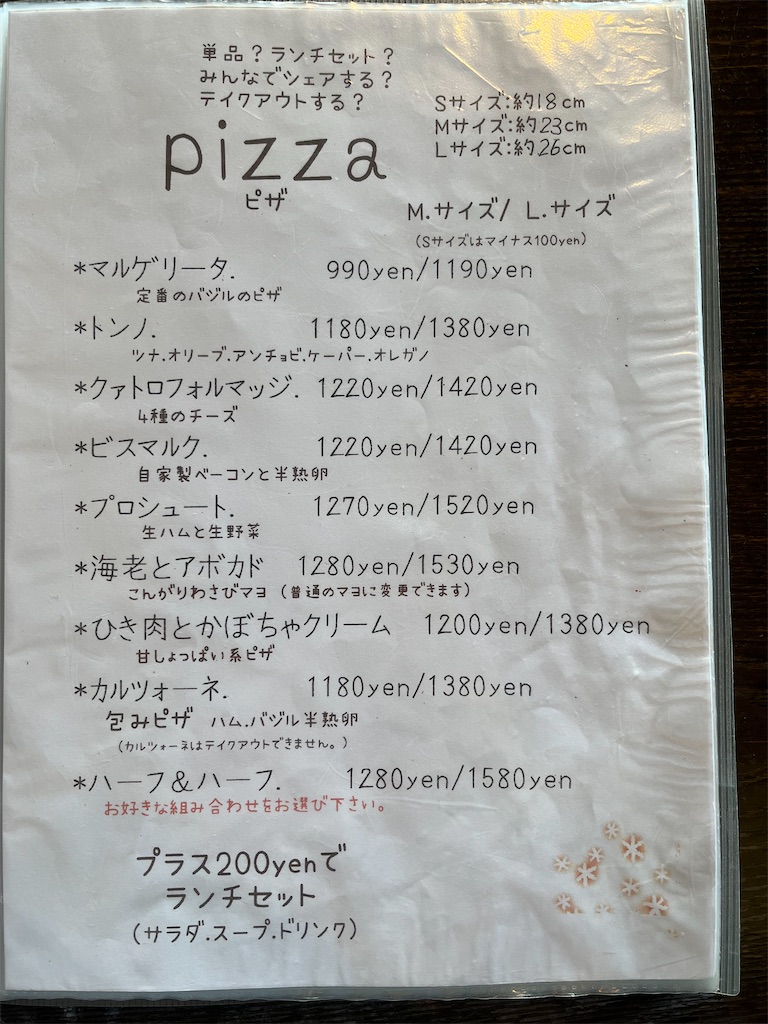 単品？ランチセット？
みんなでシェアする？
テイクアウトする？
Sサイズ:約18cm
Mサイズ:約23cm
Lサイズ:約26cm
pizza
ピザ
M.サイズ/ L.サイズ
(Sサイズはマイナス100yen)
*マルゲリータ. 990yen/1190yen
定番のバジルのピザ
*トンノ. 1180yen/1380yen
ツナ.オリーブ.アンチョビ.ケーパー.オレガノ
*クァトロフォルマッジ. 1220yen/1420yen
4種のチーズ
*ビスマルク. 1220yen/1420yen
自家製ベーコンと半熟卵
*プロシュート. 1270yen/1520yen
生ハムと生野菜
*海老とアボカド 1280yen/1530yen
こんがりわさびマヨ (普通のマヨに変更できます)
*ひき肉とかぼちゃクリーム 1200yen/1380yen
甘しょっぱい系ピザ
*カルツォーネ. 1180yen/1380yen
包みピザ ハム.バジル半熟卵
(カルツォーネはテイクアウトできません。)
*ハーフ＆ハーフ. 1280yen/1580yen
お好きな組み合わせをお選び下さい。
プラス200yenで
ランチセット
(サラダ.スープ.ドリンク)